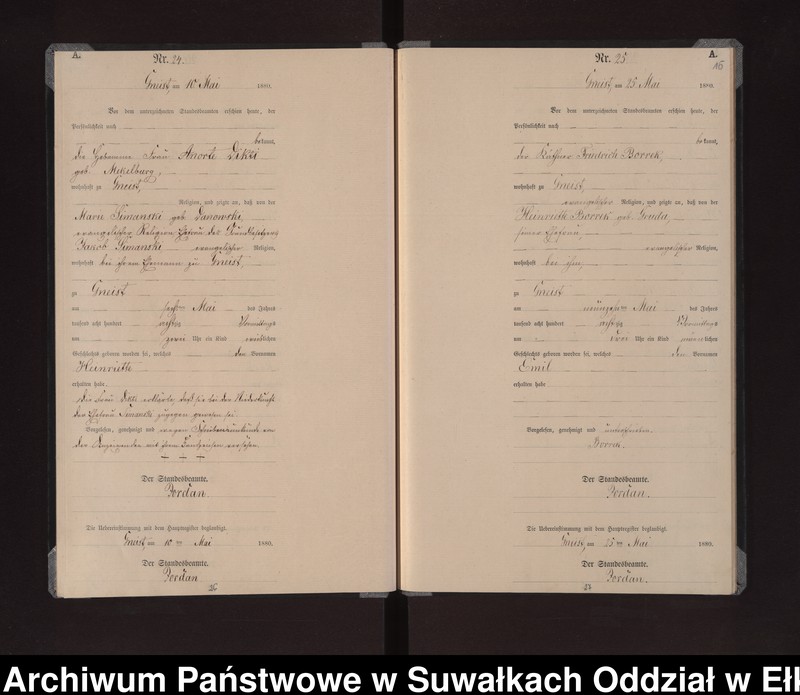 A.
Nr. 24.
Gneist, am 10 Mai 1880.
Vor dem unterzeichneten Standesbeamten erschien heute, der
Persönlichkeit nach
bekannt,
die Hebamme Frau Anorte Dikti
geb. Mekelburg,
wohnhaft zu Gneist,
Religion, und zeigte an, daß von der
Marie Simanski geb. Danowski,
evangelischer Religion Ehefrau des Grundbesitzers
Jakob Simanski evangelischer Religion,
wohnhaft bei ihrem Ehemann zu Gneist,
zu Gneist
am Mai des Jahres
tausend acht hundert achtzig Vormittags
um zwei Uhr ein Kind weiblichen
Geschlechts geboren worden sei, welches den Vornamen
Heinriette
erhalten habe.
Die Frau erklärte, daß sie bei der Niederkunft
der Ehefrau Simanski zugegen gewesen sei
Vorgelesen, genehmigt und wegen Schreibensunkunde von
der Anzeigenden mit ihrem Handzeichen versehen.
+ + +
Der Standesbeamte.
Jordan.
Die Uebereinstimmung mit dem Hauptregister beglaubigt.
Gneist, am 10 ten Mai 1880.
Der Standesbeamte.
Jordan
26
A.
16
Nr. 25
Gneist, am 25. Mai 1880.
Vor dem unterzeichneten Standesbeamten erschien heute, der
Persönlichkeit nach
bekannt,
der Käthner Friedrich Borrek,
wohnhaft zu Gneist,
evangelischer Religion, und zeigte an, daß von der
Heinrieth Borrek geb.
seiner Ehefrau,
evangelischer Religion,
wohnhaft bei ihm,
zu Gneist
am Mai des Jahres
tausend acht hundert achtzig Vormittags
um Uhr ein Kind männlichen
Geschlechts geboren worden sei, welches den Vornamen
Emil
erhalten habe
Vorgelesen, genehmigt und unterschrieben
Borrek.
Der Standesbeamte.
Jordan.
Die Uebereinstimmung mit dem Hauptregister beglaubigt.
Gneist, am 25 ten Mai 1880.
Der Standesbeamte.
Jordan.
27
Archiwum Państwowe w Suwałkach Oddział w Eł